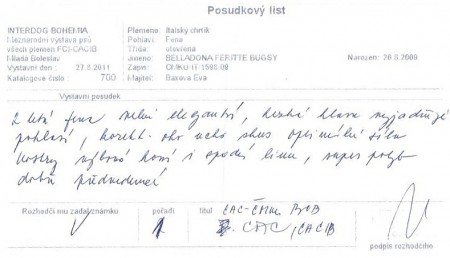 Posudkový list
INTERDOG BOHEMIA
Mezinárodní výstava psů
všech plemen FCI-CACIB
Mladá Boleslav
Výstavní den : 27.8.2011
Katalogové číslo : 700
Plemeno: Italský chrtík
Pohlaví: Fena
Třída: otevřená
Jméno: BELLADONA FERITTE BUGSY
Narozen: 20.8.2009
Zápis: CMKU/IT/1586/09
Majitel: Baxová Eva
Výstavní posudek
2 letá fena velmi elegantní, hezká hlava vyjadřující
pohlaví, korekt. oko ucho skus optimální síla
kostry výborná horní i spodní linie, super pohyb
dobře předvedená
Rozhodčí mu zadal známku
pořadí
titul
V
1.
CAC-ČMKU BOB
CAC, CACIB
podpis rozhodčího